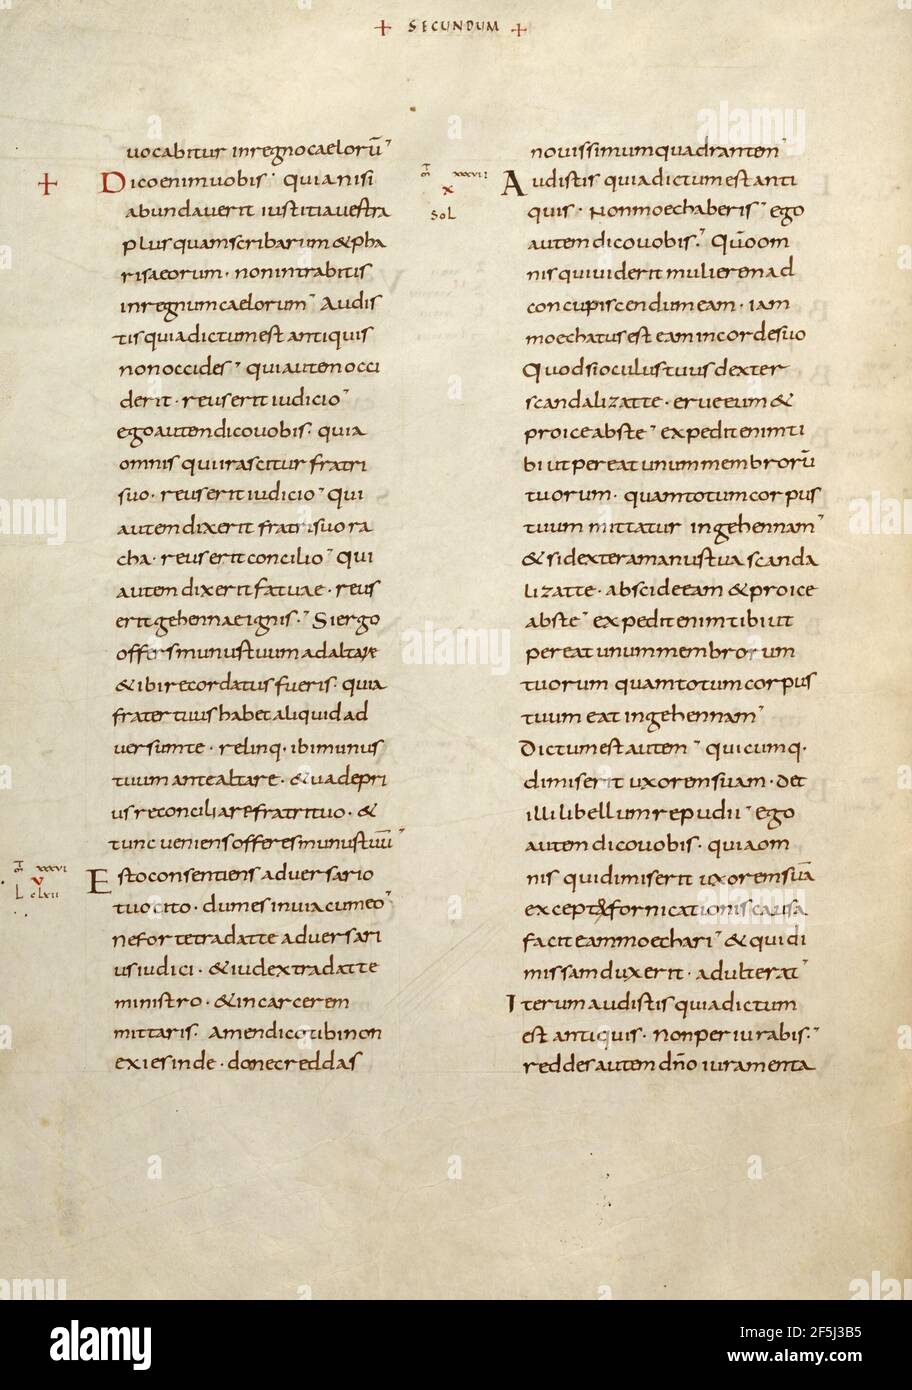 + SECUNDUM +
uocabitur inregnocaeloru̅
+ Dicoenimuobis · quianisi
abundauerit iustitiauestra
plusquamscribarum &pha
risaeorum · nonintrabitis
inregnumcaelorum Audis
tisquiadictumest antiquis
nonoccides quiautemocci
derit · reuserit iudicio
egoautemdicouobis · quia
omnis quiirascitur fratri
suo · reuserit iudicio qui
autemdixerit fratrisuora
cha · reuserit concilio qui
autemdixerit fatuae · reus
erit gehennaeignis · Siergo
offersmunustuumadaltare
&ibirecordatusfueris · quia
fratertuushabetaliquidad
uersumte · relinq · ibimunus
tuumantealtare · &uadepri
usreconciliarefratrituo · &
tuncueniensofferesmunustuu̅
xxxvi
v
L clxii
Estoconsentiensaduersario
tuocito · dumesinuiacumeo
nefortetradatteaduersari
usiudici · &iudextradatte
ministro · &incarcerem
mittaris · Amendicotibinon
exiesinde · donecreddas
nouissimumquadrantem
xxxvii
x
Sol
Audistis quiadictumestanti
quis · Nonmoechaberis ego
autemdicouobis · Qu̅oom
nisquiuiderit mulieremad
concupiscendumeam · iam
moechatusest eamincordesuo
Quodsioculustuusdexter
scandalizatte · erueeum &
proiceabste expeditenimti
bi utpereatunummembroru̅
tuorum · quamtotumcorpus
tuum mittatur ingehennam
&sidexteramanustuascanda
lizatte · abscideeam &proice
abste expeditenimtibiut
pereatunummembrorum
tuorum quamtotumcorpus
tuum eatingehennam
Dictumestautem quicumq ·
dimiserit uxoremsuam · det
illilibellumrepudii ego
autemdicouobis · quiaom
nis quidimiserit uxoremsua̅
except&fornicationiscausa
faciteammoechari &quidi
missamduxerit · adulterat
Iterumaudistisquiadictum
est antiquis · nonperiurabis
reddesautem dn̅o iuramenta
alamy
Image ID: 2F5J3B5
www.alamy.com